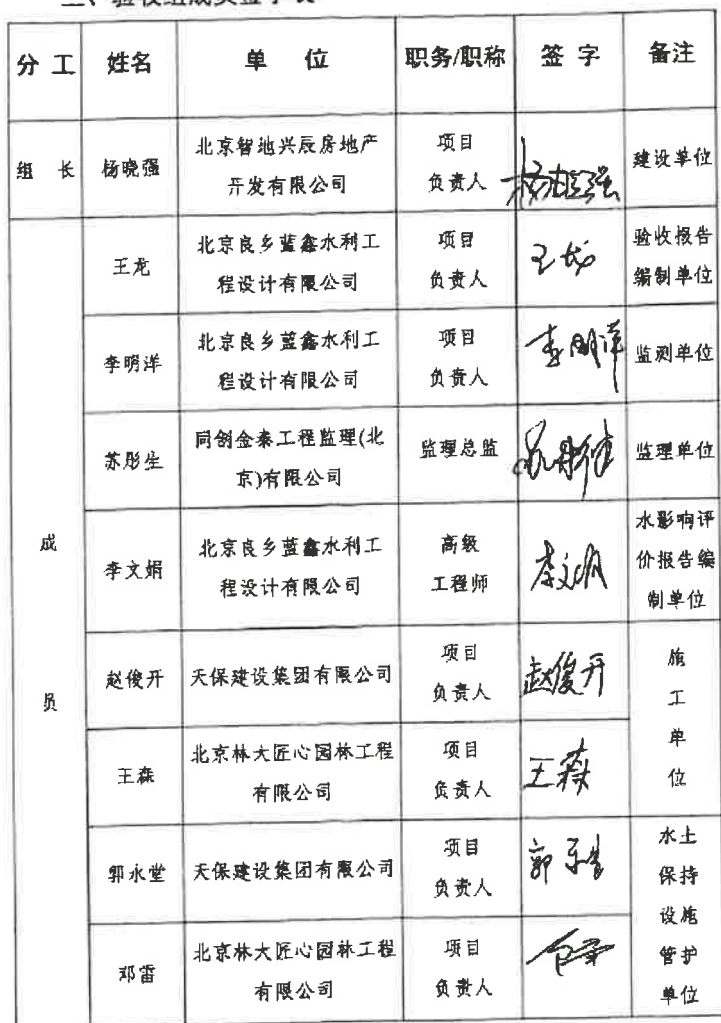 三、验收组成员签字表
分 工 姓名 单 位 职务/职称 签 字 备注
组 长 杨晓强 北京智地兴辰房地产开发有限公司 项目负责人 杨晓强 建设单位
成员
王龙 北京良乡蓝鑫水利工程设计有限公司 项目负责人 王龙 验收报告编制单位
李明洋 北京良乡蓝鑫水利工程设计有限公司 项目负责人 李明洋 监测单位
苏彤生 同创金泰工程监理(北京)有限公司 监理总监 监理单位
李文娟 北京良乡蓝鑫水利工程设计有限公司 高级工程师 李文娟 水影响评价报告编制单位
赵俊开 天保建设集团有限公司 项目负责人 赵俊开 施工单位
王森 北京林大匠心园林工程有限公司 项目负责人 王森
郭永堂 天保建设集团有限公司 项目负责人 郭永堂 水土保持设施管护单位
邓雷 北京林大匠心园林工程有限公司 项目负责人